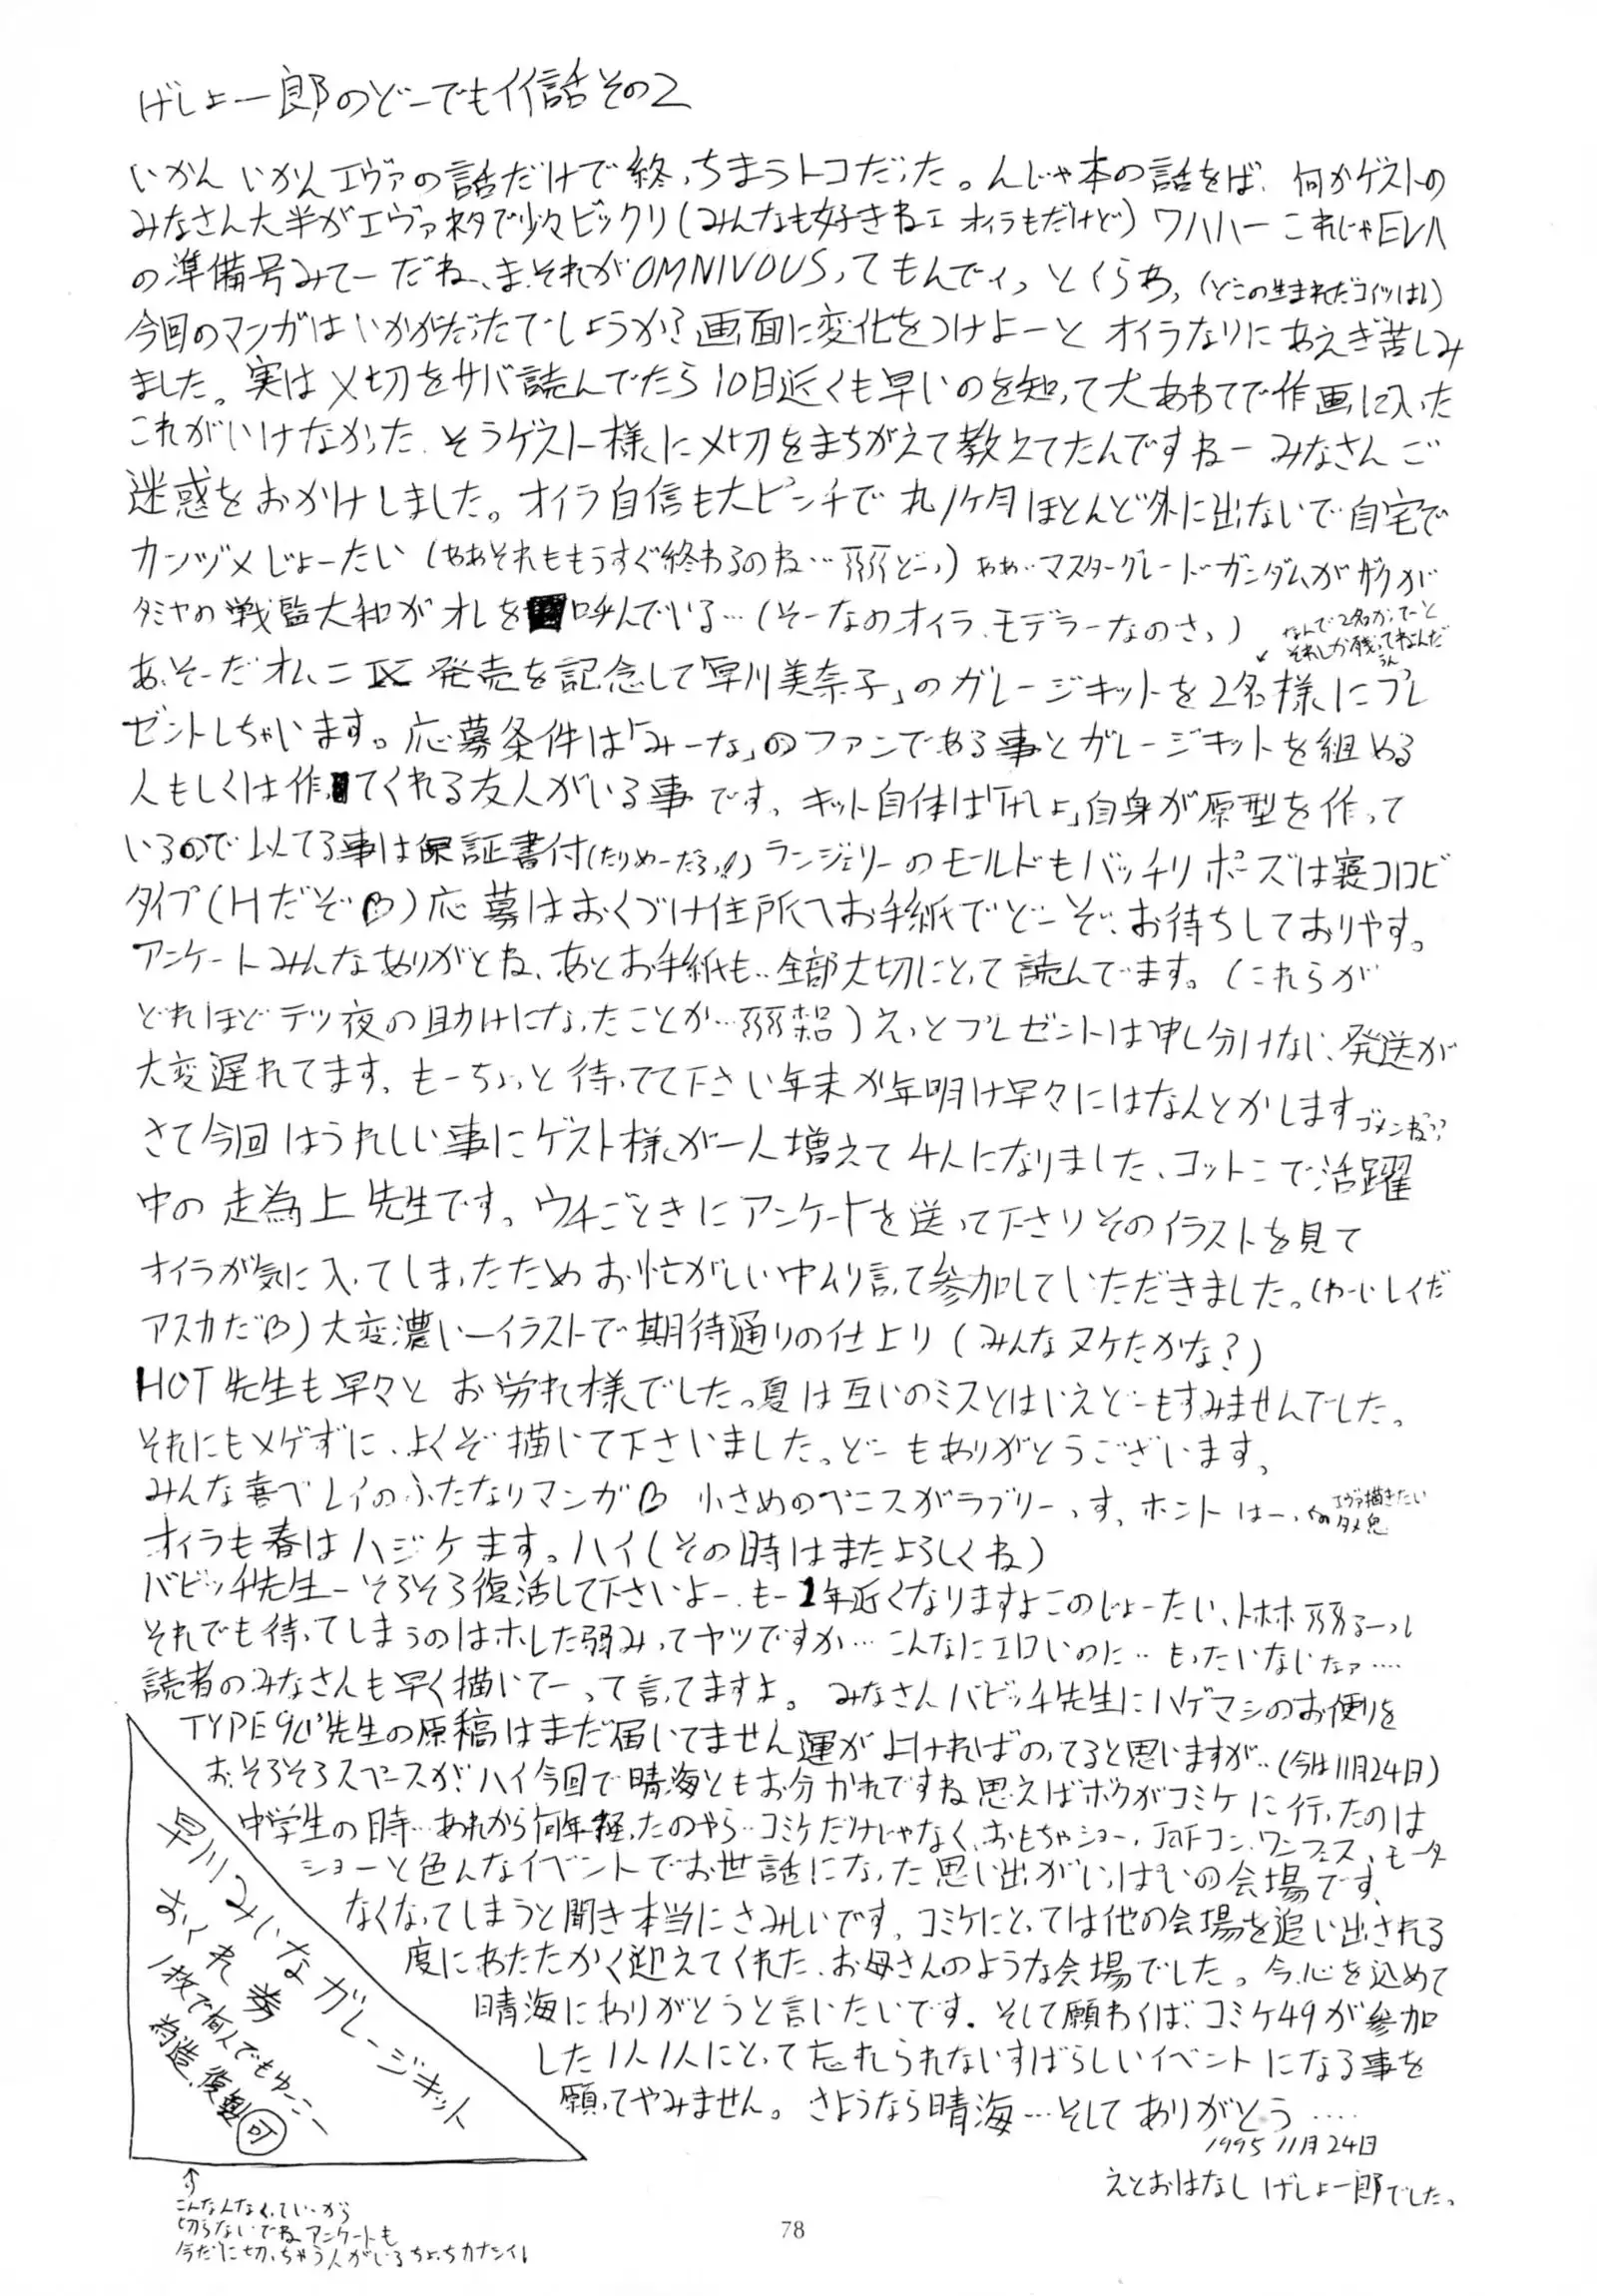 げしょ一郎のどーでもイイ話その2
いかんいかんエヴァの話だけで終っちまうトコだった。んじゃ本の話をば、何かゲストの
みなさん大半がエヴァネタで少々ビックリ(みんなも好きねェ オイラもだけど)ワハハー これじゃEVA
の準備号みてーだね、ま、それがOMNIVOUSってもんでィっとくらぁ、(どこの生まれだコイツは!)
今回のマンガはいかがだったでしょうか?画面に変化をつけよーと オイラなりにあえぎ苦しみ
ました。実は〆切をサバ読んでたら10日近くも早いのを知って大あわてで作画に入った
これがいけなかった、そうゲスト様に〆切をまちがえて教えてたんですねー みなさんご
迷惑をおかけしました。オイラ自信も大ピンチで丸1ヶ月ほとんど外に出ないで自宅で
カンヅメじょーたい(ああそれももうすぐ終わるのね…)ああ‥マスターグレードガンダムがザクが
タミヤの戦艦大和がオレを呼んでいる…(そーなのオイラ、モデラーなのさっ)
なんで2名かってーと
それしか残ってねぇんだ
うん
あ、そーだオムニⅨ発売を記念して「早川美奈子」のガレージキットを2名様にプレ
ゼントしちゃいます。応募条件は「みーな」のファンである事とガレージキットを組める
人もしくは作ってくれる友人がいる事です、キット自体は「げしょ」自身が原型を作って
いるので似てる事は保証書付(たりめーだろっ!!)ランジェリーのモールドもバッチリポーズは寝コロビ
タイプ(Hだぞ♡)応募はおくづけ住所へお手紙でどーぞ、お待ちしておりやす。
アンケートみんなありがとね、あとお手紙も‥全部大切にとって読んでます。(これらが
どれほどテツ夜の助けになったことか…)えっとプレゼントは申し分けない、発送が
大変遅れてます、もーちょっと待ってて下さい年末か年明け早々にはなんとかします ゴメンね??
さて今回はうれしい事にゲスト様が一人増えて4人になりました、コットンで活躍
中の走為上先生です。ウチごときにアンケートを送って下さりそのイラストを見て
オイラが気に入ってしまったためお忙がしい中ムリ言って参加していただきました。(わーいレイだ
アスカだ♡)大変濃いーイラストで期待通りの仕上り(みんなヌケたかな?)
HOT先生も早々とお労れ様でした。夏は互いのミスとはいえどーもすみませんでした。
それにもメゲずに、よくぞ描いて下さいました。どーもありがとうございます、
みんな喜べレイのふたなりマンガ♡ 小さめのペニスがラブリーっす、ホントはー、
エヴァ描きたい
オイラも春はハジケます。ハイ(その時はまたよろしくね)
バビッチ先生ーそろそろ復活して下さいよー、もー1年近くなりますよこのじょーたい、トホホ
それでも待ってしまうのはホレた弱みってヤツですか…こんなにエロいのに‥もったいないなァ‥‥
読者のみなさんも早く描いてーって言ってますよ。みなさんバビッチ先生にハゲマシのお便りを
TYPE90'先生の原稿はまだ届いてません運がよければのってると思いますが‥(今は11月24日)
お、そろそろスペースが!ハイ今回で晴海ともお分かれですね思えばボクがコミケに行ったのは
中学生の時‥あれから何年経ったのやら‥コミケだけじゃなく、おもちゃショー、JAFコン、ワンフェス、モータ
ショーと色んなイベントでお世話になった思い出がいっぱいの会場です、
なくなってしまうと聞き本当にさみしいです、コミケにとっては他の会場を追い出される
度にあたたかく迎えてくれた、お母さんのような会場でした。今、心を込めて
晴海にありがとうと言いたいです。そして願わくば、コミケ49が参加
した1人1人にとって忘れられないすばらしいイベントになる事を
願ってやみません。さようなら晴海…そしてありがとう‥‥
1995 11月24日
えとおはなし げしょ一郎でした。
早川みいなガレージキット
おくれ券
1枚で何人でもゆーこー
偽造、複製可
↑
こんなんなくていーから
切らないでね、アンケートも
今だに切っちゃう人がいる ちょっちカナシイ!
78